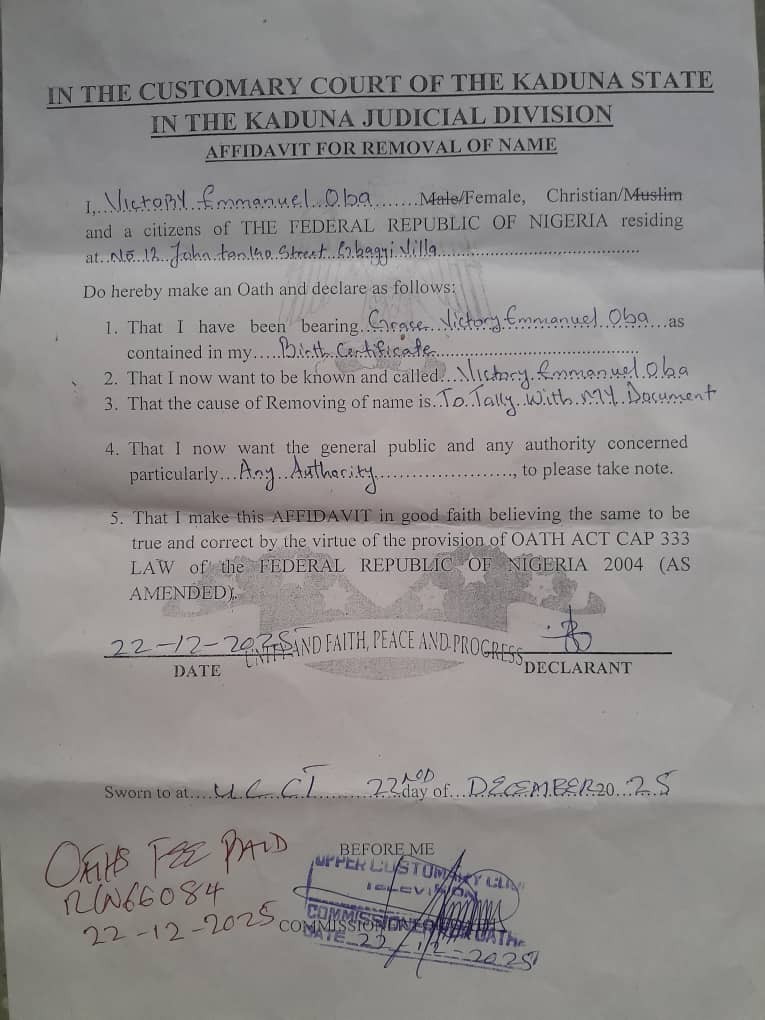 IN THE CUSTOMARY COURT OF THE KADUNA STATE
IN THE KADUNA JUDICIAL DIVISION
AFFIDAVIT FOR REMOVAL OF NAME
I,..Victory Emmanuel Oba........Male/Female, Christian/Muslim
and a citizens of THE FEDERAL REPUBLIC OF NIGERIA residing
at..No.12. John Street Gbagyi Villa...
Do hereby make an Oath and declare as follows:
1. That I have been bearing..Grace Victory Emmanuel Oba...as
contained in my.....Birth Certificate...
2. That I now want to be known and called...Victory Emmanuel Oba
3. That the cause of Removing of name is..To Tally With MY Document
4. That I now want the general public and any authority concerned
particularly...Any Authority......................, to please take note.
5. That I make this AFFIDAVIT in good faith believing the same to be
true and correct by the virtue of the provision of OATH ACT CAP 333
LAW of the FEDERAL REPUBLIC OF NIGERIA 2004 (AS
AMENDED).
22-12-2025
UNITY AND FAITH, PEACE AND PROGRESS
DATE DECLARANT
Sworn to at....U.C.C.T.......22ND day of...DECEMBER 20..25
OATHS FEE PAID
22-12-2025
BEFORE ME
UPPER CUSTOMARY
TELEVISION
COMMISSIONER FOR OATHS
DATE 22/12-2025